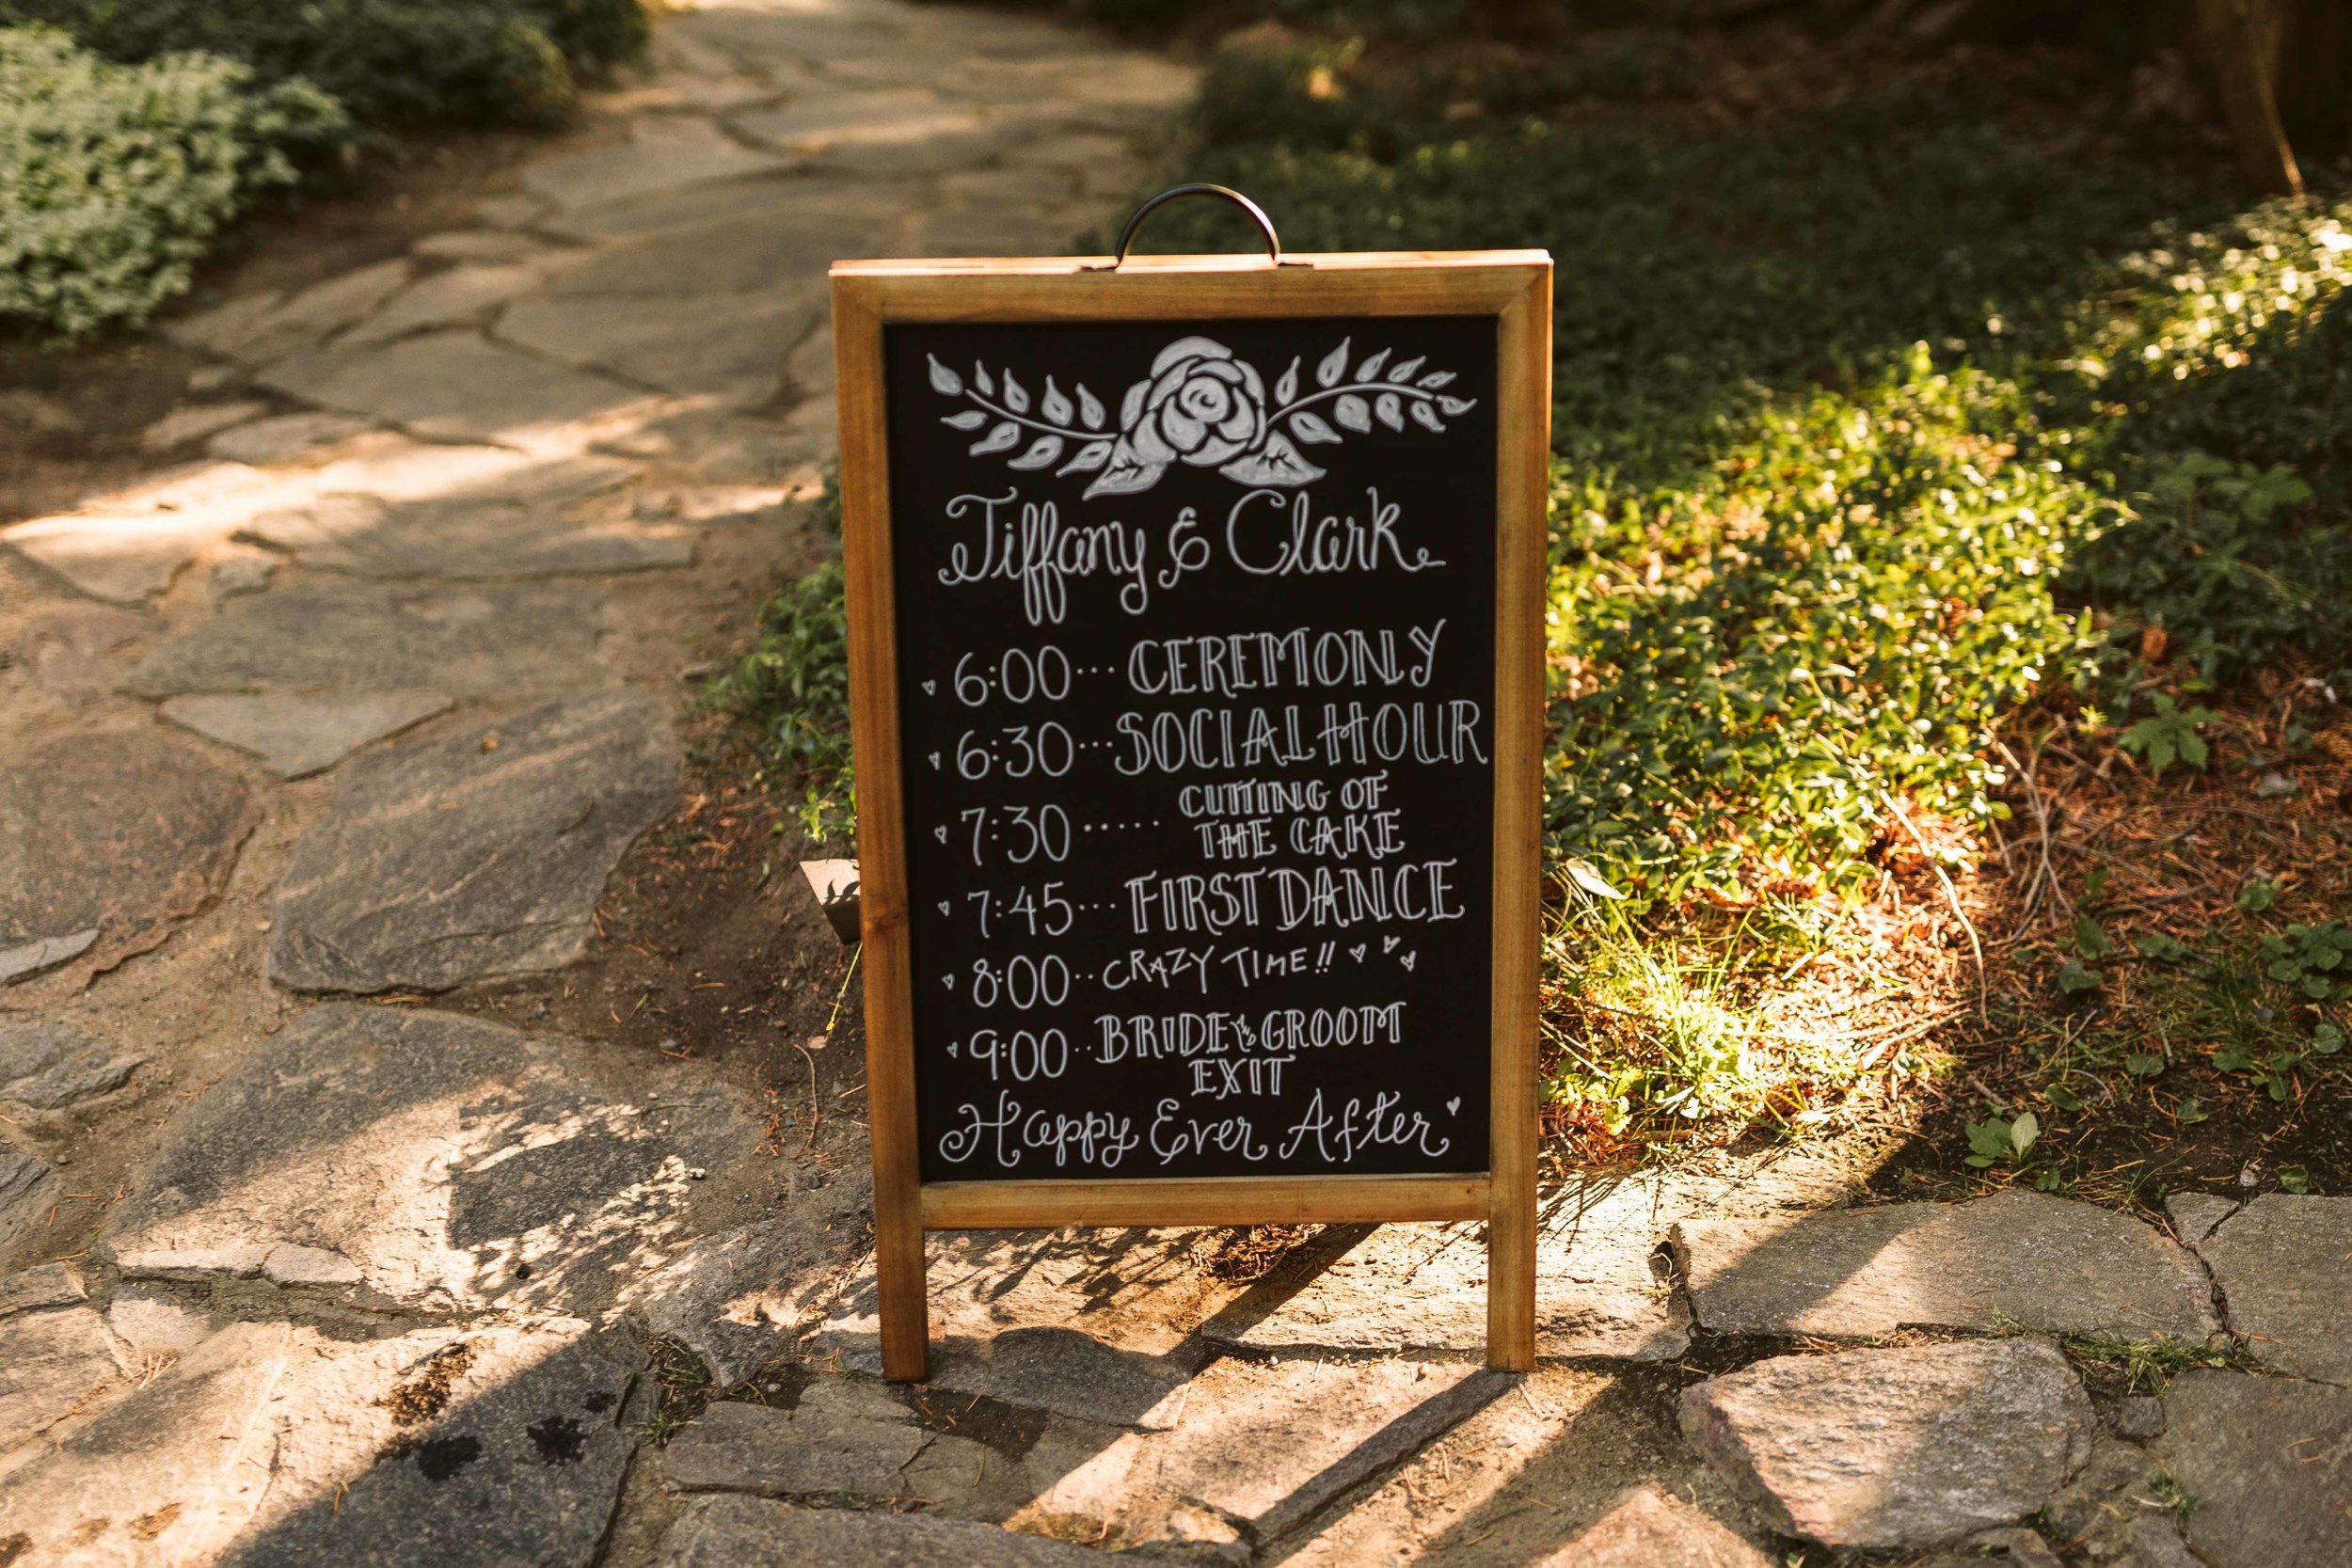 Tiffany & Clark
6:00... CEREMONY
6:30...SOCIAL HOUR
7:30..... CUTTING OF
THE CAKE
7:45... FIRST DANCE
8:00.. CRAZY TIME!!
9:00.. BRIDE & GROOM
EXIT
Happy Ever After